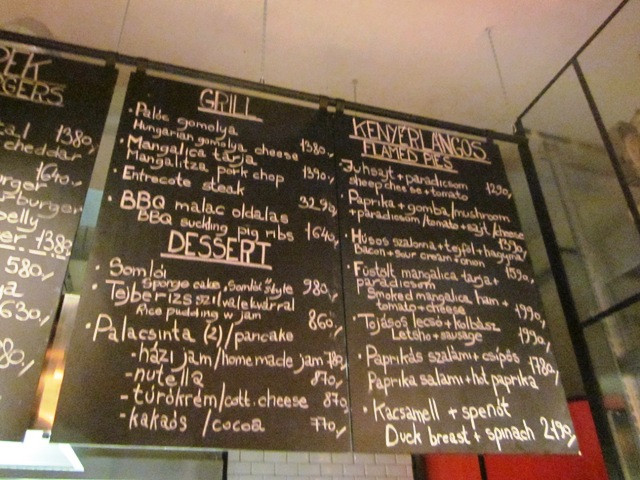 GERS
1380,-
cheddar
1640,-
urger
burger
belly
er 1382
580,-
ya
630,-
80,-
GRILL
• Palóc gomolya
Hungarian gomolya cheese 1380,-
• Mangalica tarja
Mangalitza pork chop 1390,-
• Entrecote steak
3290,-
• BBQ malac oldalas
BBQ suckling pig ribs 1640,-
DESSERT
• Somlói
Sponge cake, Somlói style 980,-
• Tejberizs szilvalekvárral
Rice pudding w jam 860,-
• Palacsinta (2)/pancake
- házi jam/home made jam 780,-
- nutella 870,-
- túrókrém/cott. cheese 870,-
- kakaós /cocoa 770,-
KENYÉRLÁNGOS
FLAMED PIES
• Juhsajt + paradicsom
sheep cheese + tomato 1290,-
• Paprika + gomba/mushroom
+ paradicsom/tomato + sajt/cheese
• Húsos szalonna + tejföl + hagyma
Bacon + sour cream + onion 1590,-
• Füstölt mangalica tarja +
paradicsom
Smoked mangalica ham +
tomato + cheese 1990,-
• Tojásos lecsó + kolbász
Letcho + sausage 1990,-
• Paprikás szalámi + csípős 1780,-
Paprika salami + hot paprika
• Kacsamell + spenót
Duck breast + spinach 2190,-